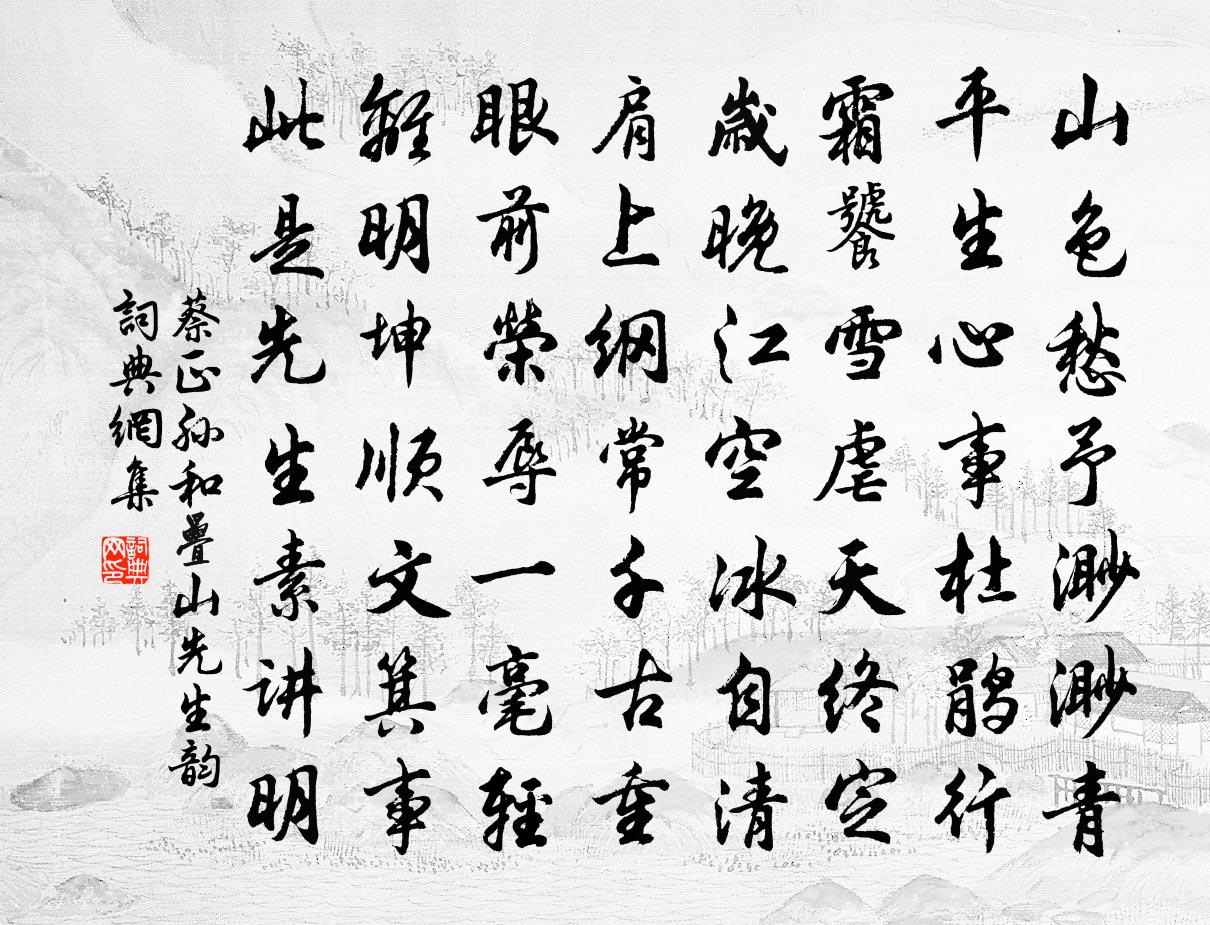 山色愁予渺渺青
平生心事杜鹃行
霜饕雪虐天终定
歲晚江空冰自清
肩上纲常千古重
眼前榮辱一毫輕
離明坤顺文箕事
此是先生素讲明
蔡正孙和疊山先生韵
詞典網集
詞典网印